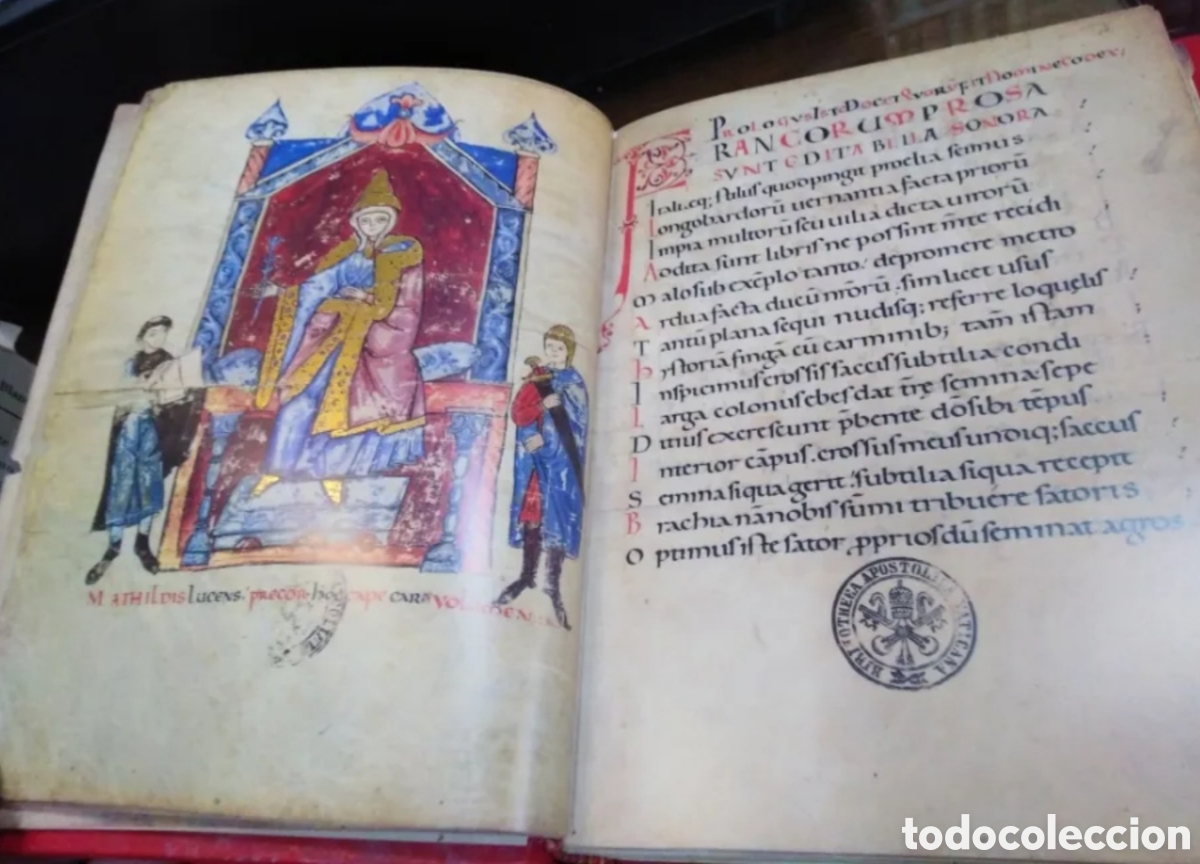 MATHILDIS LUCENS. PRECOR. HOC CAPE CARA VOLUMEN
PROLOGVS ISTE DOCET QVORV̄ FIT NOMINE CODEX;
RANCORUM PROSA
SVNT EDITA BELLA SONORA
Italieq; stilus quod pingit proelia scimus
Longobardorū uernantia facta priorū
Impia multorū seu uilia dicta uirorū
Addita sunt libris ne possint m̄te recidi
Malo sub exēplo tanto. depromere metro
Ardua facta ducū nr̄orū. sim licet usus
Tantū plana sequi nudisq; referre loquelis
hystoriā fingā cū carminib; tam̄ istam
Inspicimus crossis saccis subtilia condi
Larga colonus ebes dat tr̄re semina sepe
Ditius excrescunt p̄bente dō sibi tēpus
Interior cāpus. crossus meus undiq; saccus
Semina siqua gerit. subtilia siqua recepit
Brachia nā nobis sūmi tribuere satoris
Optimus iste sator pprios dū seminat agros
BIBLIOTHECA APOSTOLICA VATICANA
todocoleccion